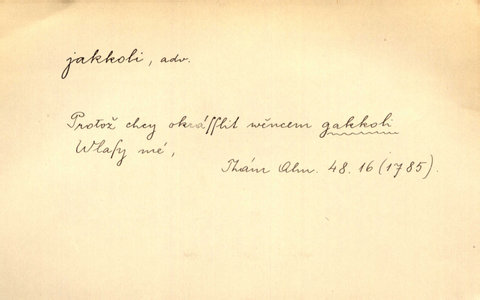 jakkoli, adv.
Protož chcy okráſſlit wěncem gakkoli
Wlaſy mé,
Thám Alm. 48. 16 (1785).